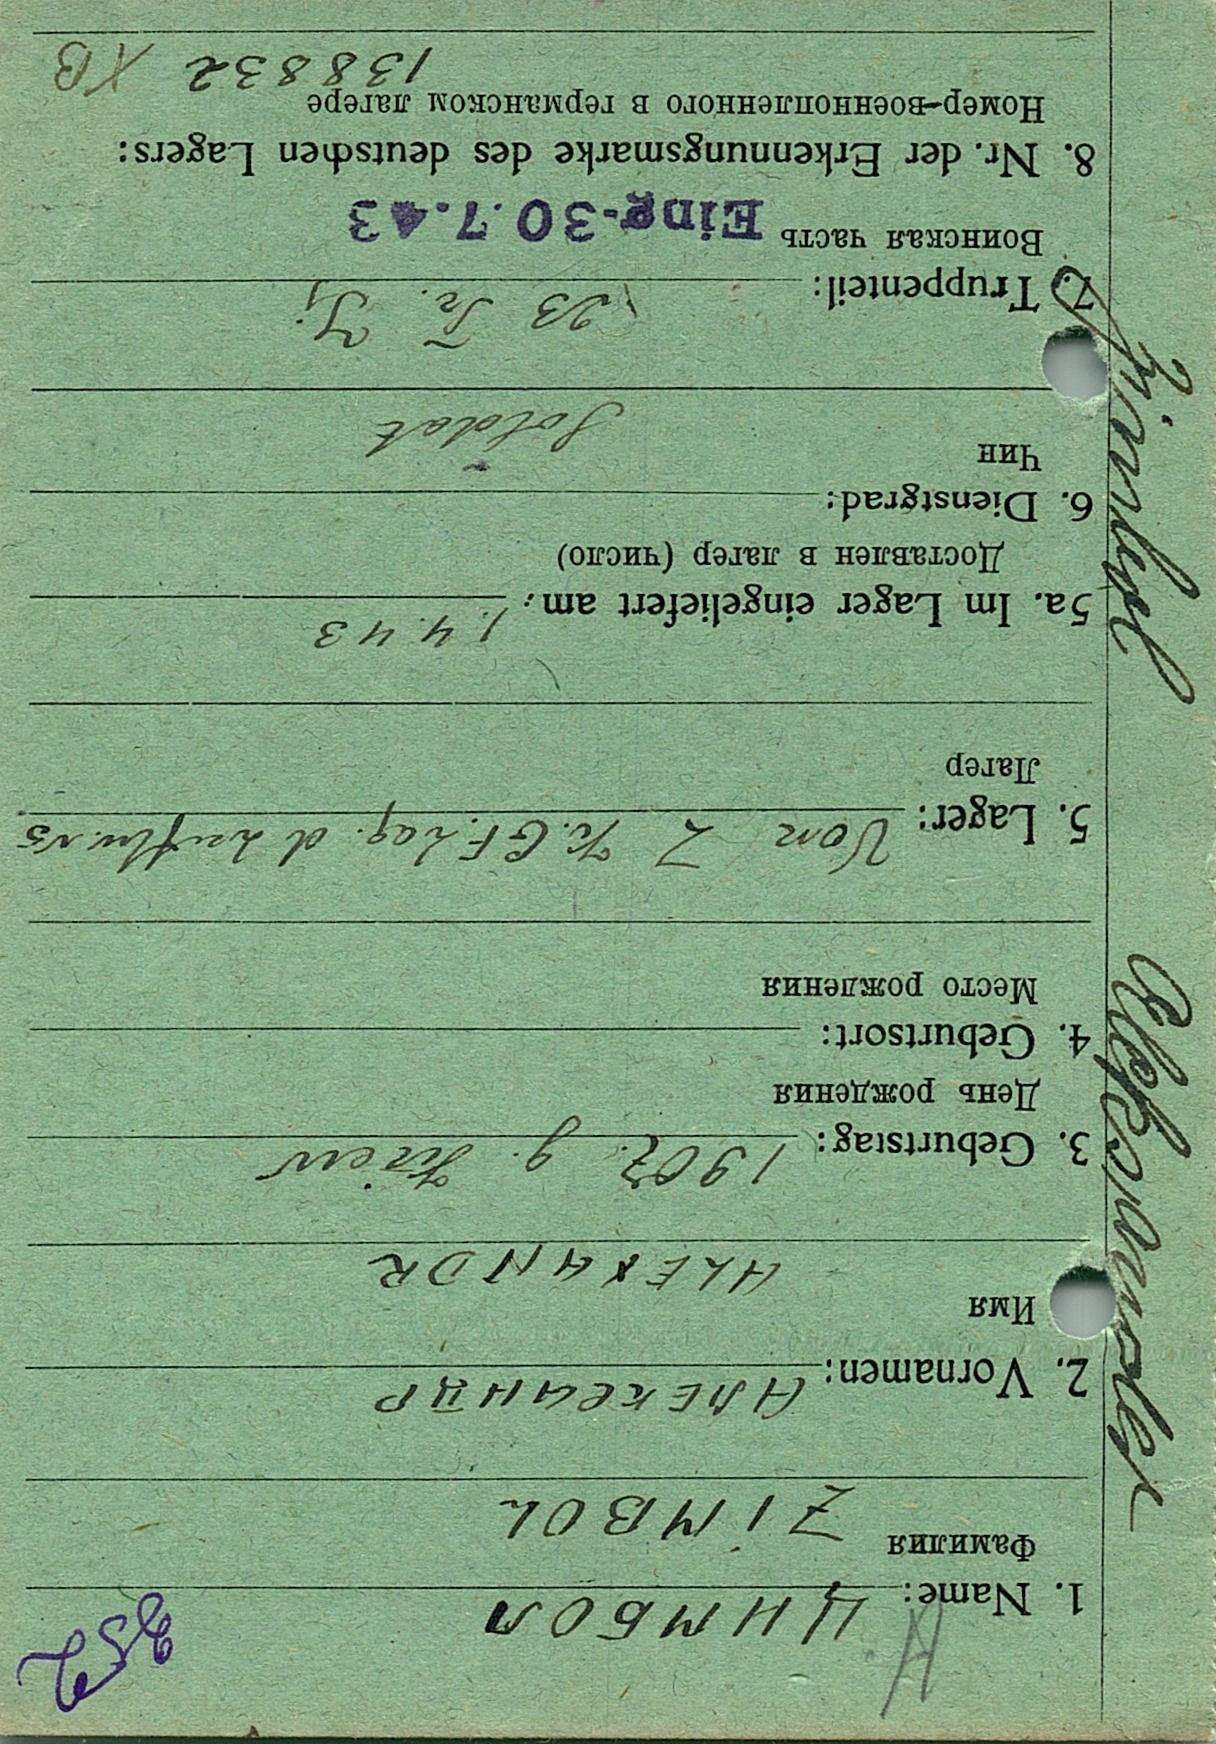 252
A.
1. Name: ЦИМБОЛ
Фамилия
ZIMBOL
2. Vornamen: АЛЕКСАНДР
Имя
ALEXANDR
3. Geburtstag: 1907. g. Kiew
День рождения
4. Geburtsort:
Место рождения
5. Lager: Von 2 Kr. GF. Lag. d Luftw. N5
Лагер
5a. Im Lager eingeliefert am: 1.4.43
Доставлен в лагер (число)
6. Dienstgrad:
Чин
Soldat
7. Truppenteil: 23 Tr. Ij
Воинская часть
Eing. 30.7.43
8. Nr. der Erkennungsmarke des deutschen Lagers:
Номер-военнопленного в германском лагере
138832 XB
Alexander